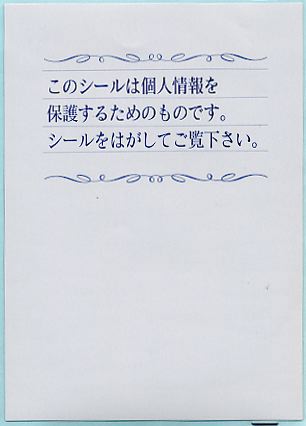 このシールは個人情報を
保護するためのものです。
シールをはがしてご覧下さい。